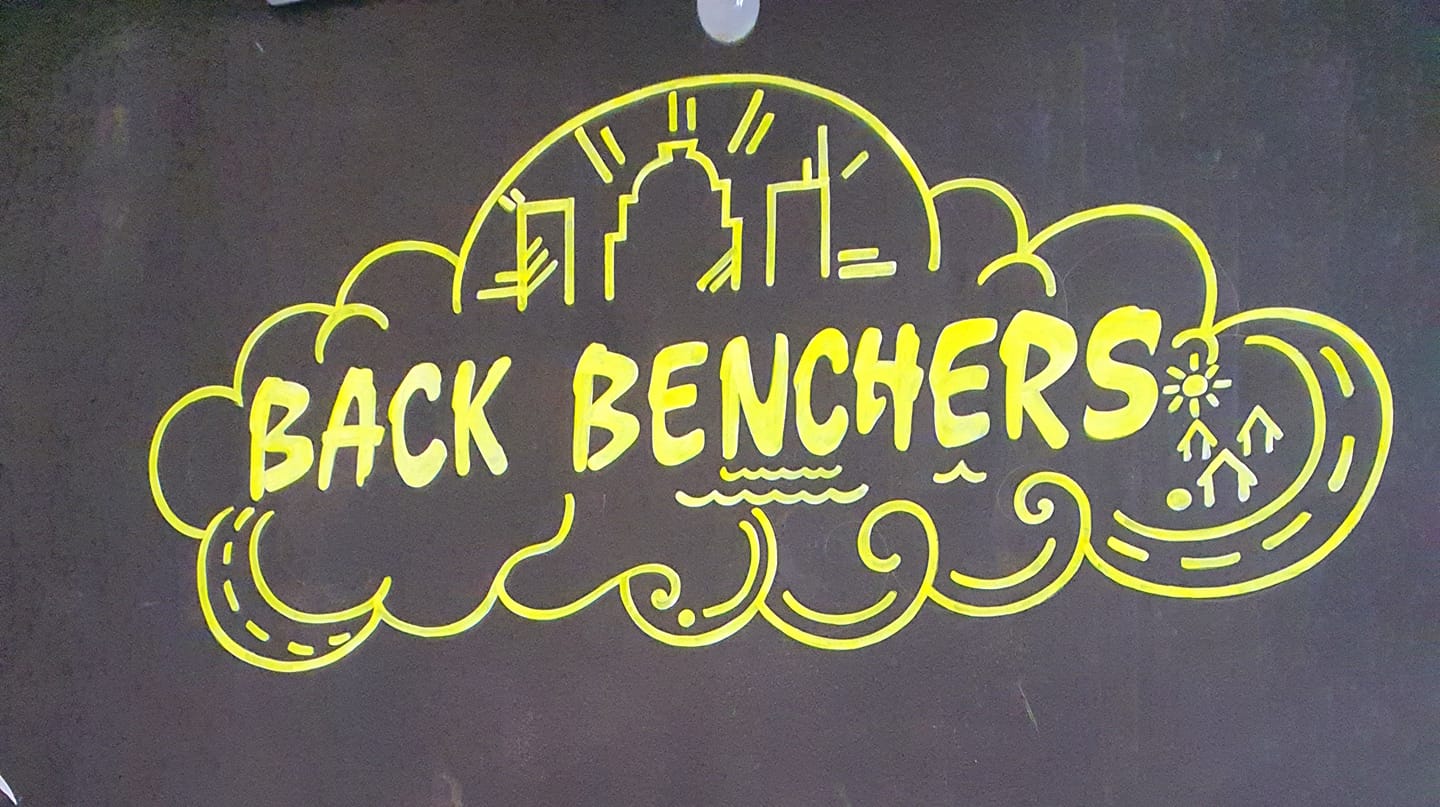 BACK BENCHERS